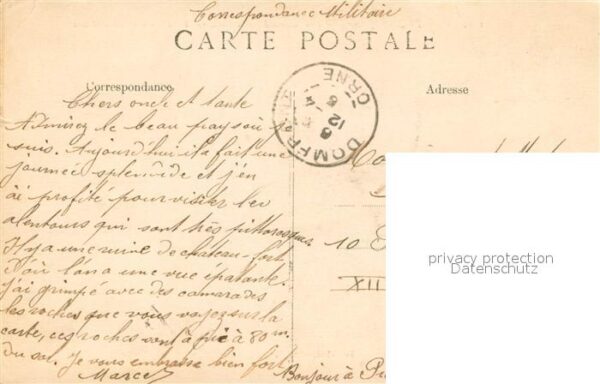 Correspondance Militaire
CARTE POSTALE
Correspondance
Adresse
Chers oncle et tante
Admirez le beau pays où je
suis. Aujourd'hui il a fait une
journée splendide et j'en
ai profité pour visiter les
alentours qui sont très pittoresques.
Il y a une ruine de chateau-fort
d'où l'on a une vue épatante.
J'ai grimpé avec des camarades
les roches que vous voyez sur la
carte, ces roches sont à pic à 80 m.
du sol. Je vous embrasse bien fort
Marcel
Bonjour à
DOMFR
ORNE
12
10
XII
privacy protection
Datenschutz